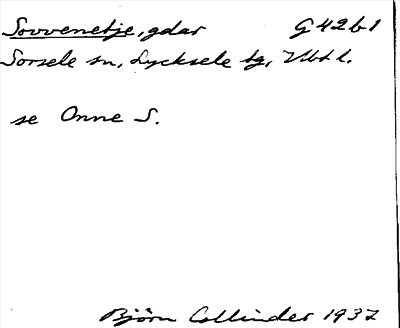 Sovvenetje, gdar G42b1
Sorsele sn, Lycksele tg, Vbt l.
se Onne S.
Björn Collinder 1937